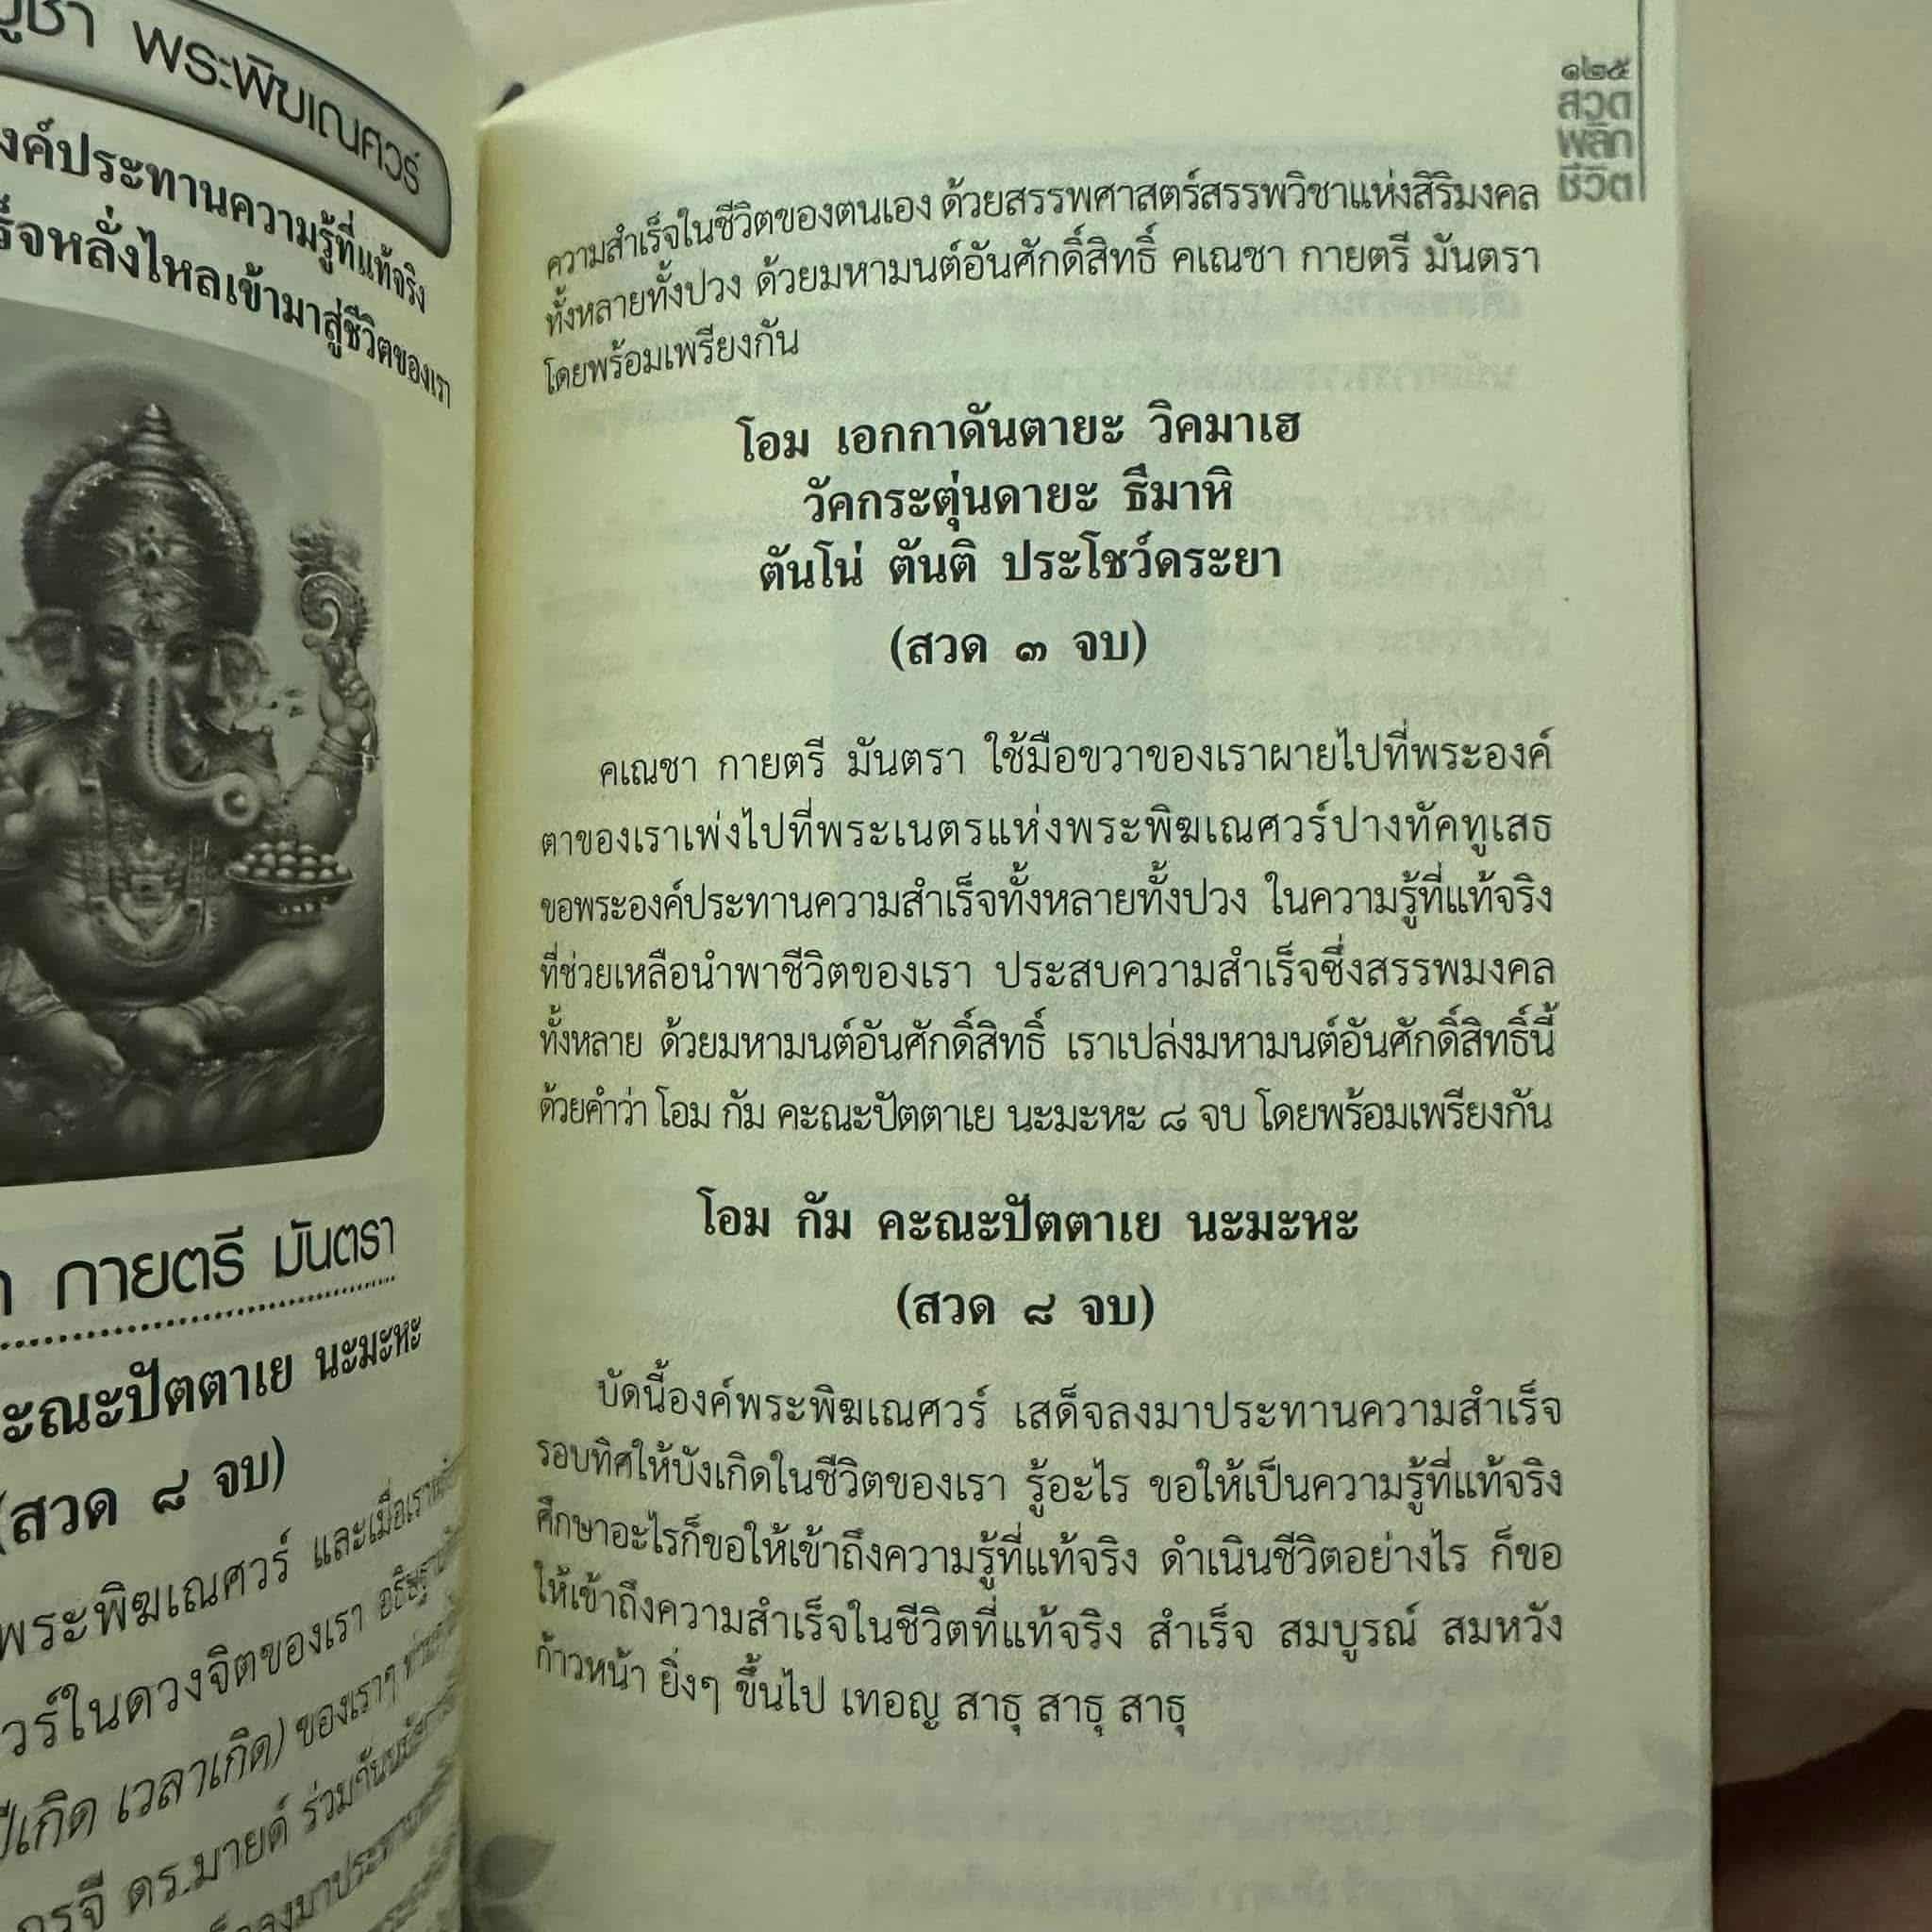 บูชา พระพิฆเณศวร์
งค์ประทานความรู้ที่แท้จริง
ร็จหลั่งไหลเข้ามาสู่ชีวิตของเรา
กายตรี มันตรา
ะณะปัตตาเย นะมะหะ
(สวด ๘ จบ)
พระพิฆเณศวร์ และเมื่อเรา
วร์ในดวงจิตของเรา
ปีเกิด เวลาเกิด) ของเราๆ
ดร.มายด์ ร่วมกัน
๑๒๕
สวด
พลิก
ชีวิต
ความสำเร็จในชีวิตของตนเอง ด้วยสรรพศาสตร์สรรพวิชาแห่งสิริมงคล
ทั้งหลายทั้งปวง ด้วยมหามนต์อันศักดิ์สิทธิ์ คเณชา กายตรี มันตรา
โดยพร้อมเพรียงกัน
โอม เอกกาดันตายะ วิคมาเฮ
วัคกระตุ่นดายะ ธีมาหิ
ตันโน่ ตันติ ประโชว์ดระยา
(สวด ๓ จบ)
คเณชา กายตรี มันตรา ใช้มือขวาของเราผายไปที่พระองค์
ตาของเราเพ่งไปที่พระเนตรแห่งพระพิฆเณศวร์ปางทัคทูเสธ
ขอพระองค์ประทานความสำเร็จทั้งหลายทั้งปวง ในความรู้ที่แท้จริง
ที่ช่วยเหลือนำพาชีวิตของเรา ประสบความสำเร็จซึ่งสรรพมงคล
ทั้งหลาย ด้วยมหามนต์อันศักดิ์สิทธิ์ เราเปล่งมหามนต์อันศักดิ์สิทธิ์นี้
ด้วยคำว่า โอม กัม คะณะปัตตาเย นะมะหะ ๘ จบ โดยพร้อมเพรียงกัน
โอม กัม คะณะปัตตาเย นะมะหะ
(สวด ๘ จบ)
บัดนี้องค์พระพิฆเณศวร์ เสด็จลงมาประทานความสำเร็จ
รอบทิศให้บังเกิดในชีวิตของเรา รู้อะไร ขอให้เป็นความรู้ที่แท้จริง
ศึกษาอะไรก็ขอให้เข้าถึงความรู้ที่แท้จริง ดำเนินชีวิตอย่างไร ก็ขอ
ให้เข้าถึงความสำเร็จในชีวิตที่แท้จริง สำเร็จ สมบูรณ์ สมหวัง
ก้าวหน้า ยิ่งๆ ขึ้นไป เทอญ สาธุ สาธุ สาธุ